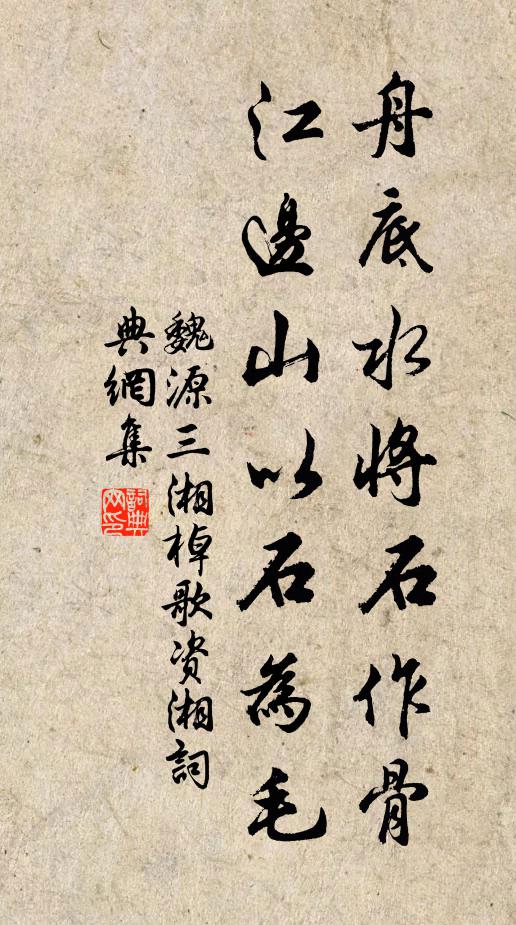 舟底水将石作骨
江邊山以石為毛
魏源三湘棹歌资湘詞
典網集
詞典
网印